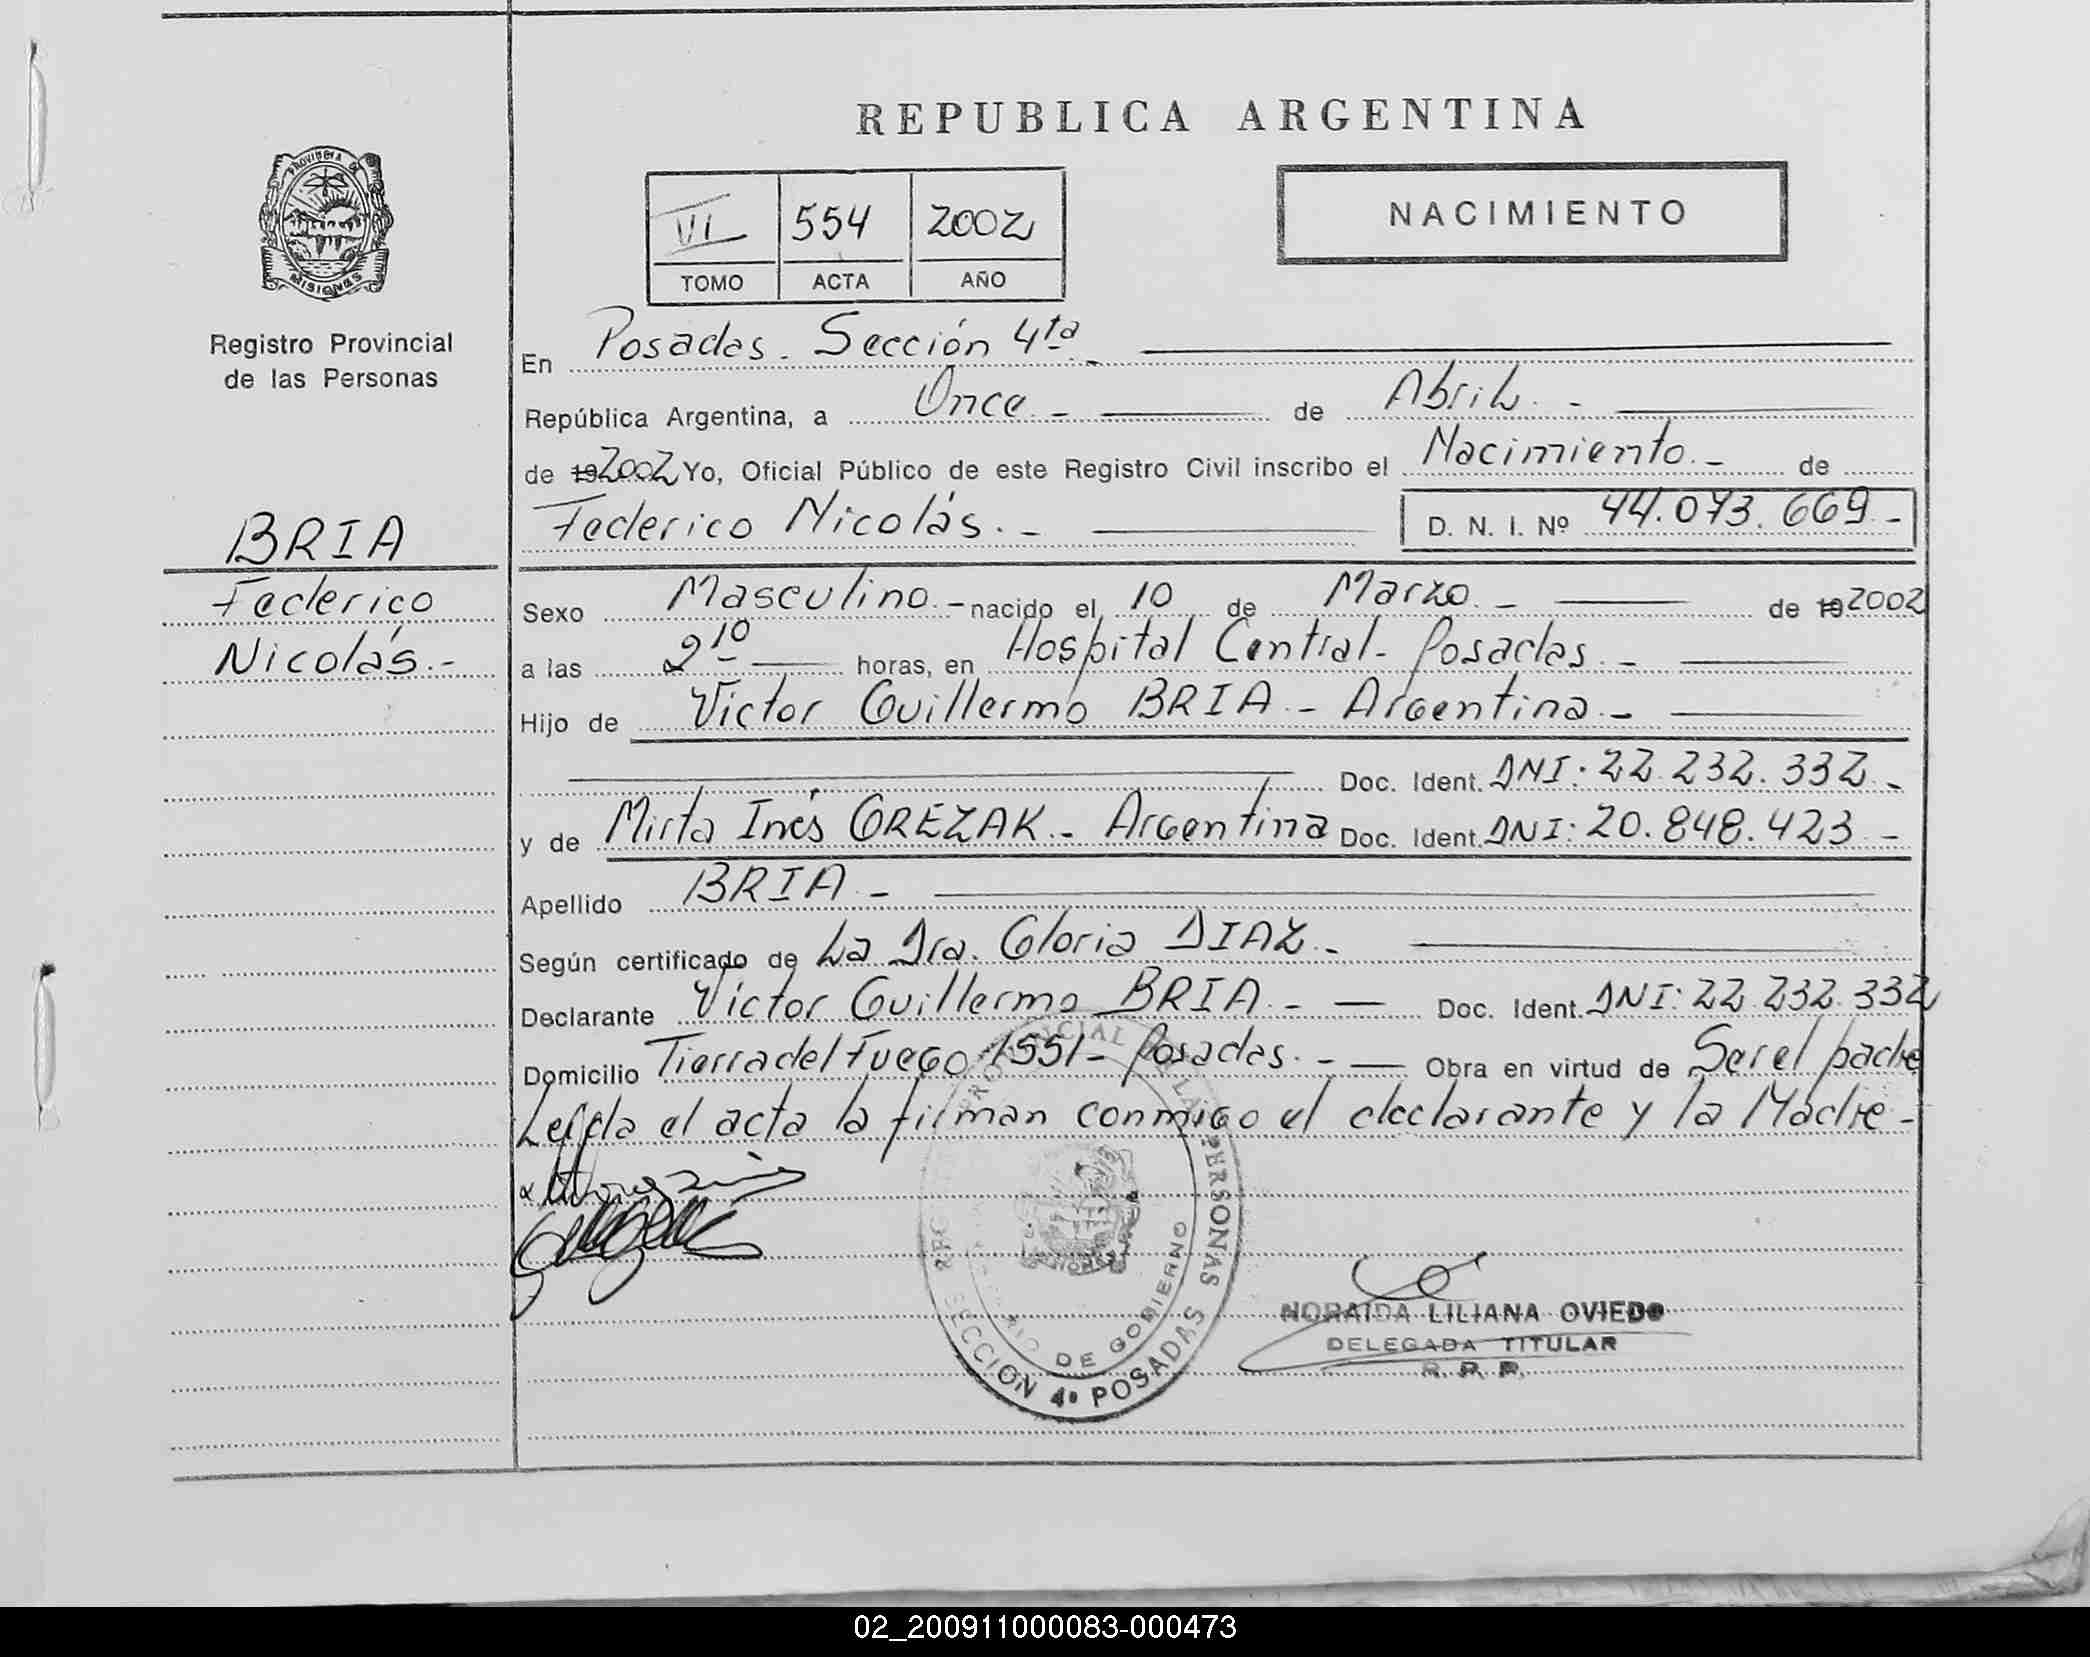 REPUBLICA ARGENTINA
PROVINCIA DE
MISIONES
Registro Provincial
de las Personas
VI 554 2002
TOMO ACTA AÑO
NACIMIENTO
En Posadas. Sección 4ta.-
República Argentina, a Once.- de Abril.-
de 192002 Yo, Oficial Público de este Registro Civil inscribo el Nacimiento.- de
Federico Nicolás.- D. N. I. Nº 44.073.669.-
BRIA
Federico
Nicolás.-
Sexo Masculino.- nacido el 10 de Marzo.- de 192002
a las 2 10 horas, en Hospital Central- Posadas.-
Hijo de Victor Guillermo BRIA.- Argentina.-
Doc. Ident. DNI: 22.232.332.-
y de Mirta Inés GREZAK.- Argentina Doc. Ident. DNI: 20.848.423.-
Apellido BRIA.-
Según certificado de La Dra. Gloria DIAZ.-
Declarante Victor Guillermo BRIA.- Doc. Ident. DNI: 22.232.332
Domicilio Tierra del Fuego 1551- Posadas.- Obra en virtud de Ser el padre
Leída el acta la firman conmigo el declarante y la Madre.-
PROVINCIAL DE LAS PERSONAS
SECCION 4ª POSADAS
DE GOBIERNO
NORAIDA LILIANA OVIEDO
DELEGADA TITULAR
R. P. P.
02_200911000083-000473